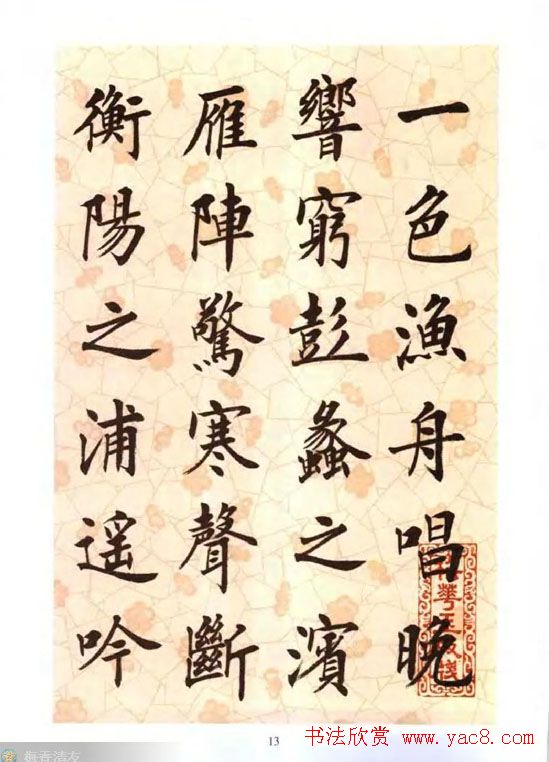 一色漁舟唱晚
響窮彭蠡之濱
雁陣驚寒聲斷
衡陽之浦遥吟
13
书法欣赏 www.yac8.com
梅香清友